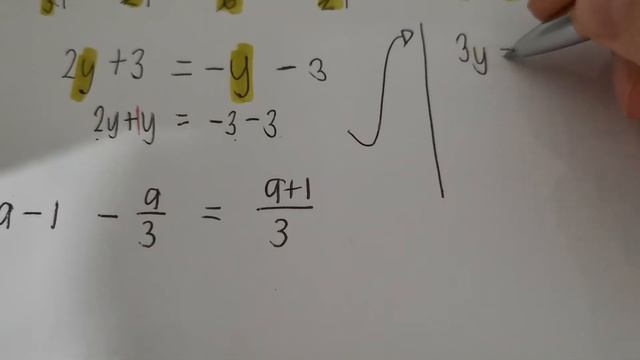 2y + 3 = -y - 3
2y+1y = -3-3
a - 1 - a/3 = a+1/3
3y =